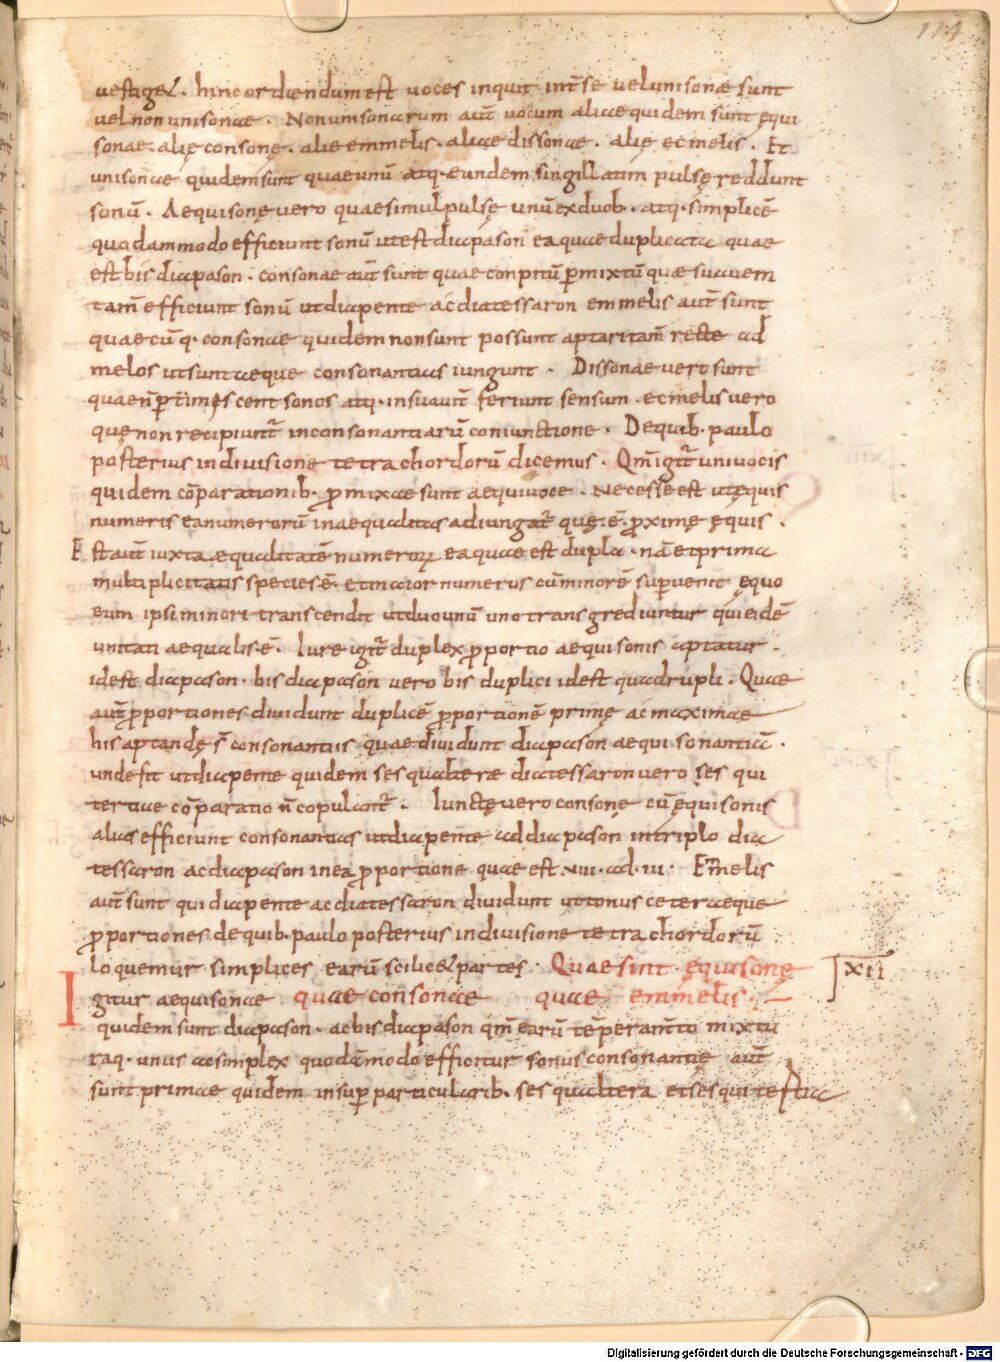 174
uestiget. hinc ordiendum est uoces inquit int̄ se uel unisonæ sunt
uel non unisonae. Non unisonarum aut̄ uocum aliae quidem sunt ęqui
sonae. alię consonę. alie emmelis. aliae dissonae. alię ecmelis. Et
unisonae quidem sunt quae unū atq. eundem singillatim pulsę reddunt
sonū. Aequisonę uero quae simul pulsę unū ex duob. atq. simplicē
quodammodo efficiunt sonū ut est diapason ea quae duplicata quae
est bis diapason. consonae aut̄ sunt quae conpitū p̄mixtū quæ suauem
tam̄ efficiunt sonū ut diapente ac diatessaron emmelis aut̄ sunt
quaecūq. consonae quidem non sunt possunt aptari tam̄ recte ad
melos ut sunt aeque consonantias iungunt. Dissonae uero sunt
quae n̄ p̄ tim̄escent sonos atq. insuauit̄ feriunt sensum. ecmelis uero
quę non recipiunt̄ in consonantiarū coniunctione. De quib. paulo
posterius in diuisione tetrachordorū dicemus. Qm̄ igit̄ uniuocis
quidem cōparationib. p̄mixae sunt aequiuoce. Necesse est ut ęquis
numeris ea numerorū inaequalitas adiungat̄ quę. ē. p̄ximę ęquis.
Est aut̄ iuxta equalitatē numeroꝝ ea quae est dupla. nā et prima
multiplicitatis species ē. et maior numerus cū minorē sup̄uenit ęquo
eum ipsi minori transcendit ut duo unū uno transgrediuntur qui eidē
unitati aequalis. ē. Iure igit̄ duplex p̄portio aequisonis aptatur.
id est diapason. bis diapason uero bis duplici id est quadrupli. Quae
aut̄ p̄portiones diuidunt duplicē p̄portionē primę ac maximae
his aptandę s̄ consonantiis quae diuidunt diapason aequisonantiā.
unde fit ut diapente quidem sesqualteræ diatessaron uero sesqui
tertiae cōparatio n̄ copulant̄. Iunctę uero consonę cū ęquisonis
alias efficiunt consonantias ut diapente ad diapason in triplo dia
tessaron ac diapason in ea p̄portione quae est. viii. ad. iii. Emmelis
aut̄ sunt qui diapente ac diatessaron diuidunt ut tonus ceteraeque
p̄portiones de quib. paulo posterius in diuisione tetrachordorū
loquemur simplices earū scilicet partes. Quae sint ęquisonę
xii
Igitur aequisonae quae consonae quae emmelis.
quidem sunt diapason. ac bis diapason qm̄ earū tēperam̄to mixtu
raq. unus ac simplex quodāmodo efficitur sonus consonantię aut̄
sunt primae quidem in sup̄particularib. sesqualtera et sesquitertia
Digitalisierung gefördert durch die Deutsche Forschungsgemeinschaft - DFG